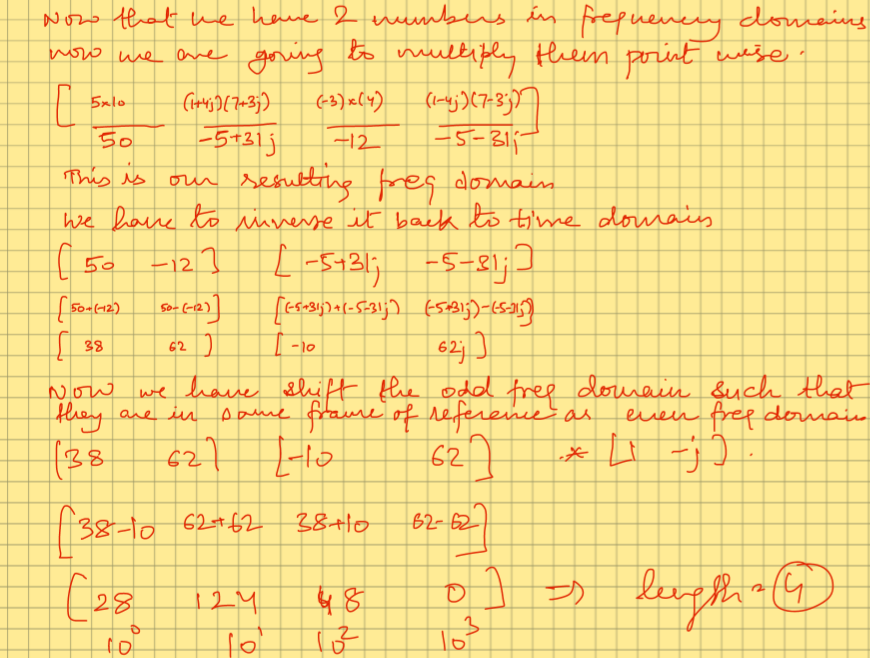 Now that we have 2 numbers in frequency domains
now we are going to multiply them point wise.
[ 5x10 (1+4j)(7+3j) (-3)x(4) (1-4j)(7-3j) ]
50 -5+31j -12 -5-31j
This is our resulting freq domain
we have to inverse it back to time domain
[ 50 -12 ] [ -5+31j -5-31j ]
[ 50+(-12) 50-(-12) ] [ (-5+31j)+(-5-31j) (-5+31j)-(-5-31j) ]
[ 38 62 ] [ -10 62j ]
Now we have shift the odd freq domain such that
they are in same frame of reference as even freq domain
[38 62] [-10 62] .* [1 -j].
[38-10 62+62 38+10 62-62]
[28 124 48 0] => length = 4
10^0 10^1 10^2 10^3